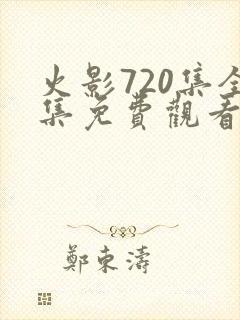 火影720集全
集免費觀看
鄭東濤